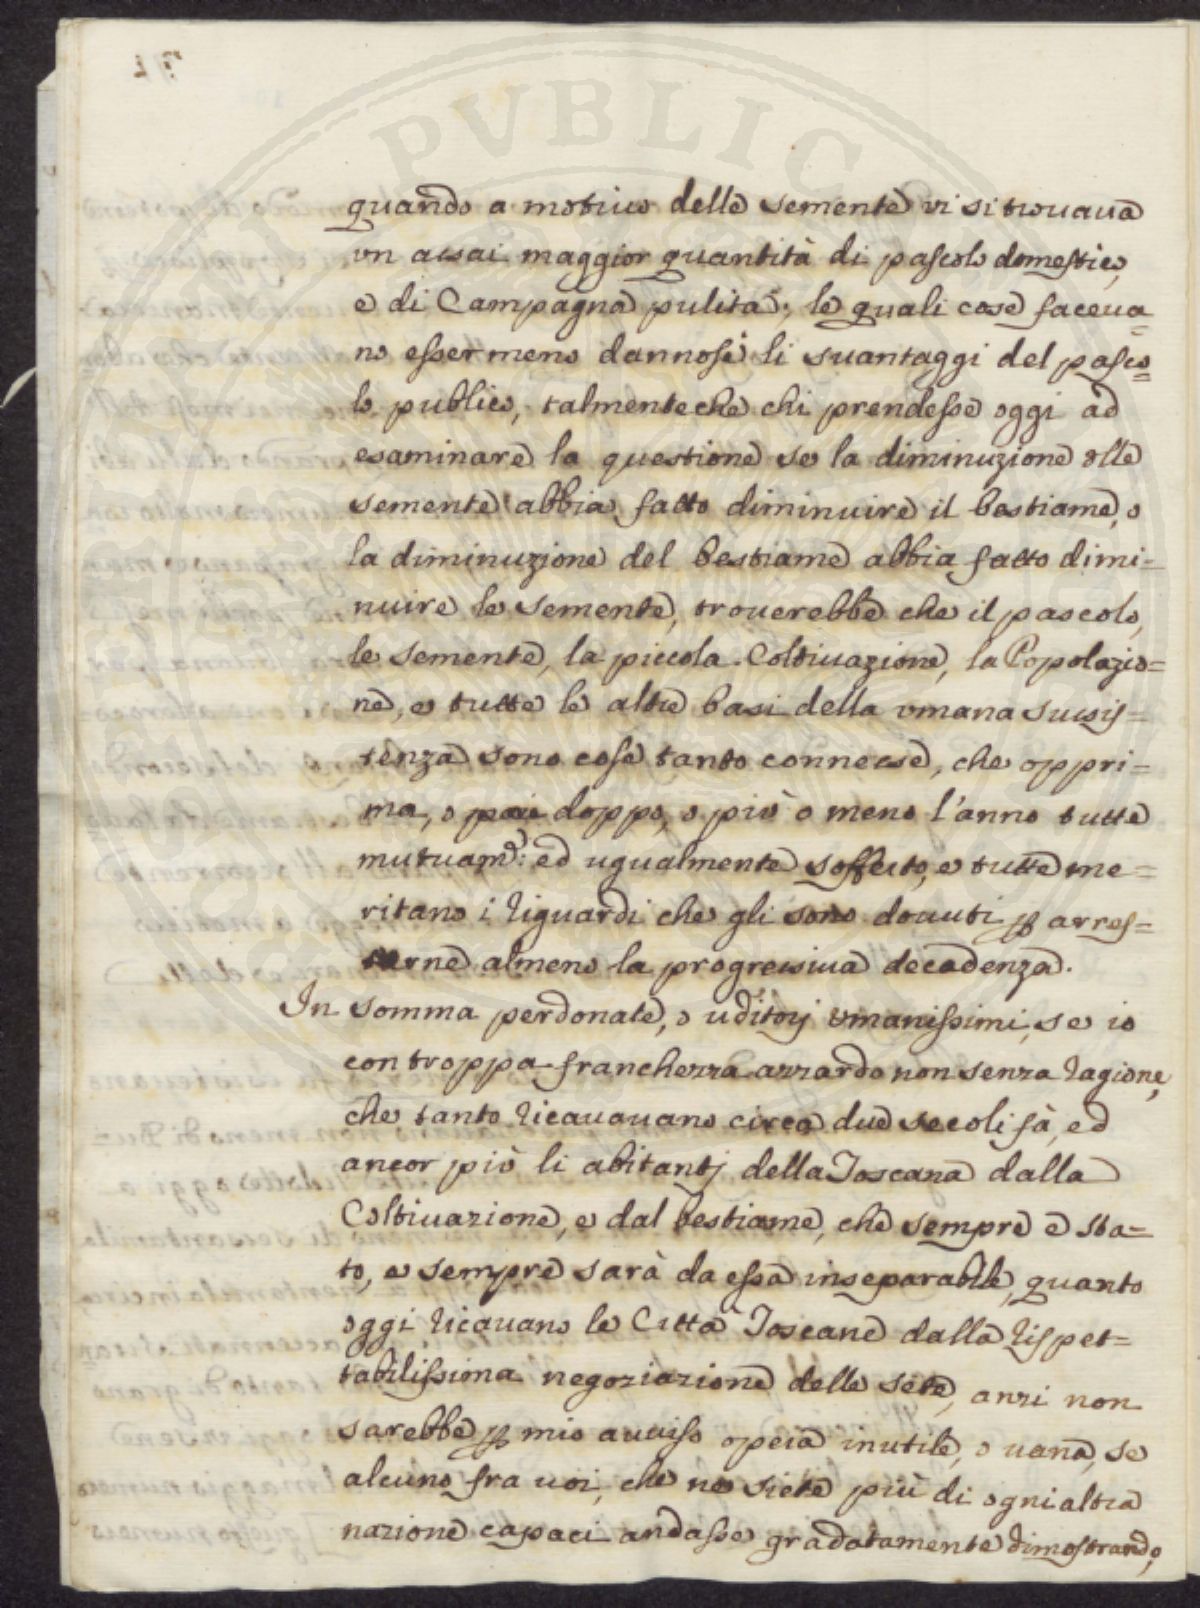 quando a motivo delle semente vi si trovava
vn assai maggior quantità di pascolo domestico,
e di Campagna pulita; le quali cose faceva=
no esser meno dannosi li svantaggi del pasco=
lo publico, talmenteche chi prendesse oggi ad
esaminare la questione se la diminuzione delle
semente abbia fatto diminuire il bestiame, o
la diminuzione del bestiame abbia fatto dimi=
nuire le semente, troverebbe che il pascolo,
le semente, la piccola Coltivazione, la Popolazio=
ne, e tutte le altre basi della vmana sussis=
tenza sono cose tanto connesse, che o ppri=
ma, o poi doppo, o più o meno l'anno tutte
mutuam.e: ed ugualmente sofferto, e tutte me=
ritano i riguardi che gli sono dovuti p arres=
tarne almeno la progressiva decadenza.
In somma perdonate, o uditorj vmanissimi, se io
con troppa franchezza azzardo non senza ragione,
che tanto ricavavano circa due secoli fà, ed
ancor più li abitantj della Toscana dalla
Coltivazione, e dal bestiame, che sempre è sta=
to, e sempre sarà da essa inseparabile, quanto
oggi ricavano le Città Toscane dalla rispet=
tabilissima negoziazione delle sete, anzi non
sarebbe p mio avviso opera inutile, o vana, se
alcuno fra voi, che ne siete più di ogni altra
nazione capaci andasse gradatamente dimostrando,
PVBLIC